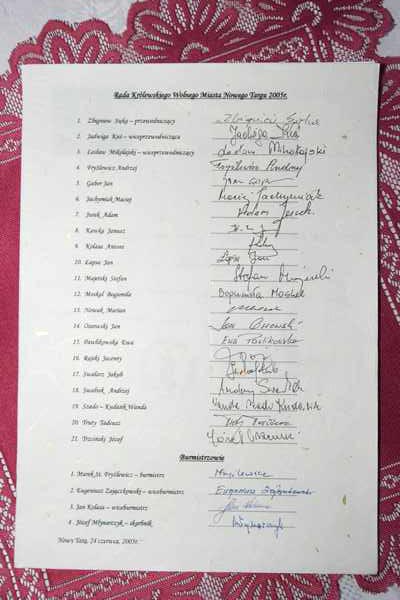 Rada Królewskiego Wolnego Miasta Nowego Targu 2005r.
1. Zbigniew Suka – przewodniczący Zbigniew Suka
2. Jadwiga Kuś – wiceprzewodnicząca Jadwiga Kuś
3. Lesław Mikołajski – wiceprzewodniczący Lesław Mikołajski
4. Fryźlewicz Andrzej Fryźlewicz Andrzej
5. Gabor Jan
6. Jachymiak Maciej Maciej Jachymiak
7. Jurek Adam Adam Jurek
8. Kawka Janusz
9. Kolasa Antoni
10. Łapsa Jan
11. Majerski Stefan Stefan
12. Moskal Bogumiła Bogumiła Moskal
13. Nowak Marian
14. Ozorowski Jan Jan
15. Pawlikowska Ewa Ewa Pawlikowska
16. Rajski Jacenty
17. Jakub
18. Andrzej Andrzej
19. Szado – Kudasik Wanda Wanda Szado Kudasik
20. Truty Tadeusz
21. Trzciński Józef Józef
Burmistrzowie
1. Marek St. Fryźlewicz – burmistrz
2. Eugeniusz Zajączkowski – wiceburmistrz Eugeniusz Zajączkowski
3. Jan Kolasa – wiceburmistrz
4. Józef Młynarczyk – skarbnik Młynarczyk
Nowy Targ, 24 czerwca, 2005r.